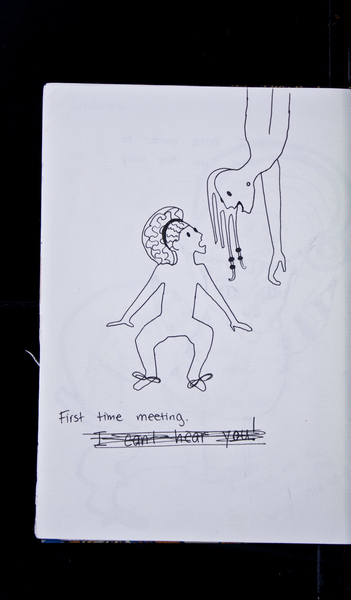 First time meeting.
I can't hear you!